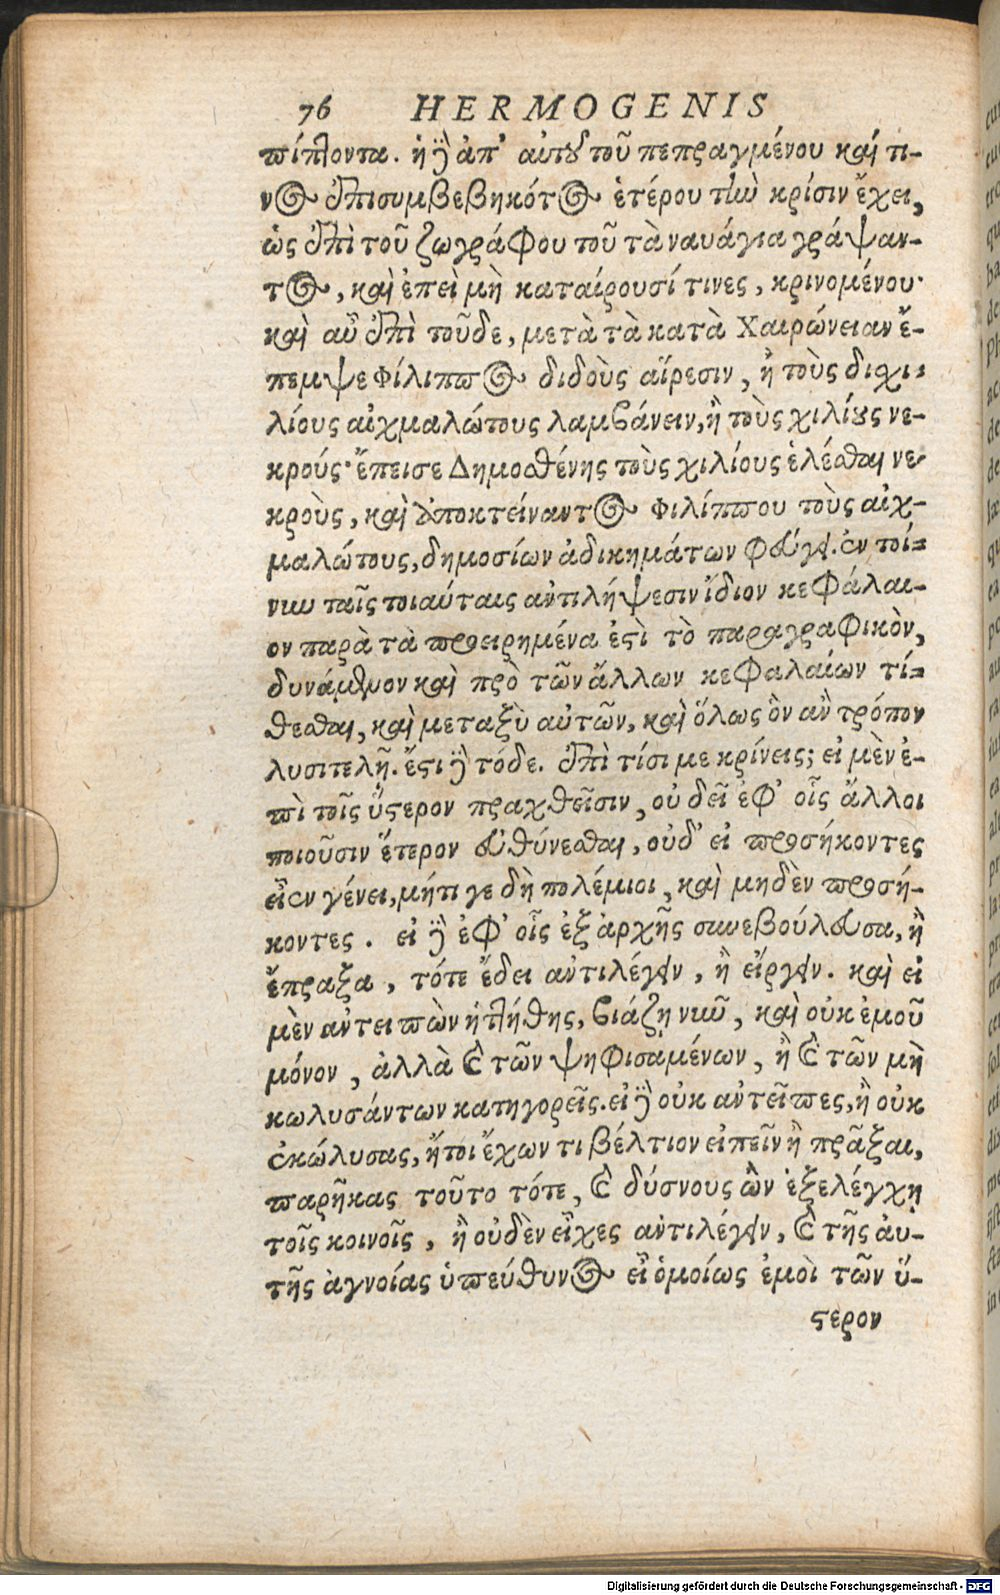 76 HERMOGENIS
πίπτοντα. ἡ δ' ἀπ' αὐτοῦ τοῦ πεπραγμένου καί τι-
νος ἐπισυμβεβηκότος ἑτέρου τὴν κρίσιν ἔχει,
ὡς ἐπὶ τοῦ ζωγράφου τοῦ τὰ ναυάγια γράψαν-
τος, καὶ ἐπεὶ μὴ καταίρουσί τινες, κρινομένου·
καὶ αὖ ἐπὶ τοῦδε, μετὰ τὰ κατὰ Χαιρώνειαν ἔ-
πεμψε Φίλιππος διδοὺς αἵρεσιν, ἢ τοὺς διχι-
λίους αἰχμαλώτους λαμβάνειν, ἢ τοὺς χιλίους νε-
κρούς· ἔπεισε Δημοσθένης τοὺς χιλίους ἑλέσθαι νε-
κροὺς, καὶ ἀποκτείναντος Φιλίππου τοὺς αἰχ-
μαλώτους, δημοσίων ἀδικημάτων φεύγει. ἐν τοί-
νυν ταῖς τοιαύταις ἀντιλήψεσιν ἴδιον κεφάλαι-
ον παρὰ τὰ προειρημένα ἐστὶ τὸ παραγραφικὸν,
δυνάμενον καὶ πρὸ τῶν ἄλλων κεφαλαίων τί-
θεσθαι, καὶ μεταξὺ αὐτῶν, καὶ ὅλως ὃν ἂν τρόπον
λυσιτελῇ. ἔστι δὲ τόδε. ἐπὶ τίσι με κρίνεις; εἰ μὲν ἐ-
πὶ τοῖς ὕστερον πραχθεῖσιν, οὐ δεῖ ἐφ' οἷς ἄλλοι
ποιοῦσιν ἕτερον εὐθύνεσθαι, οὐδ' εἰ προσήκοντες
εἶεν γένει, μήτι γε δὴ πολέμιοι, καὶ μηδὲν προσή-
κοντες. εἰ δὲ ἐφ' οἷς ἐξ ἀρχῆς συνεβούλευσα, ἢ
ἔπραξα, τότε ἔδει ἀντιλέγειν, ἢ εἴργειν. καὶ εἰ
μὲν ἀντειπὼν ἡττήθης, βιάζῃ νῦν, καὶ οὐκ ἐμοῦ
μόνον, ἀλλὰ καὶ τῶν ψηφισαμένων, ἢ καὶ τῶν μὴ
κωλυσάντων κατηγορεῖς. εἰ δὲ οὐκ ἀντεῖπες, ἢ οὐκ
ἐκώλυσας, ἤτοι ἔχων τι βέλτιον εἰπεῖν ἢ πρᾶξαι,
παρῆκας τοῦτο τότε, καὶ δύσνους ὢν ἐξελέγχῃ
τοῖς κοινοῖς, ἢ οὐδὲν εἶχες ἀντιλέγειν, καὶ τῆς αὐ-
τῆς ἀγνοίας ὑπεύθυνος εἶ ὁμοίως ἐμοὶ τῶν ὕ-
στερον
Digitalisierung gefördert durch die Deutsche Forschungsgemeinschaft - DFG